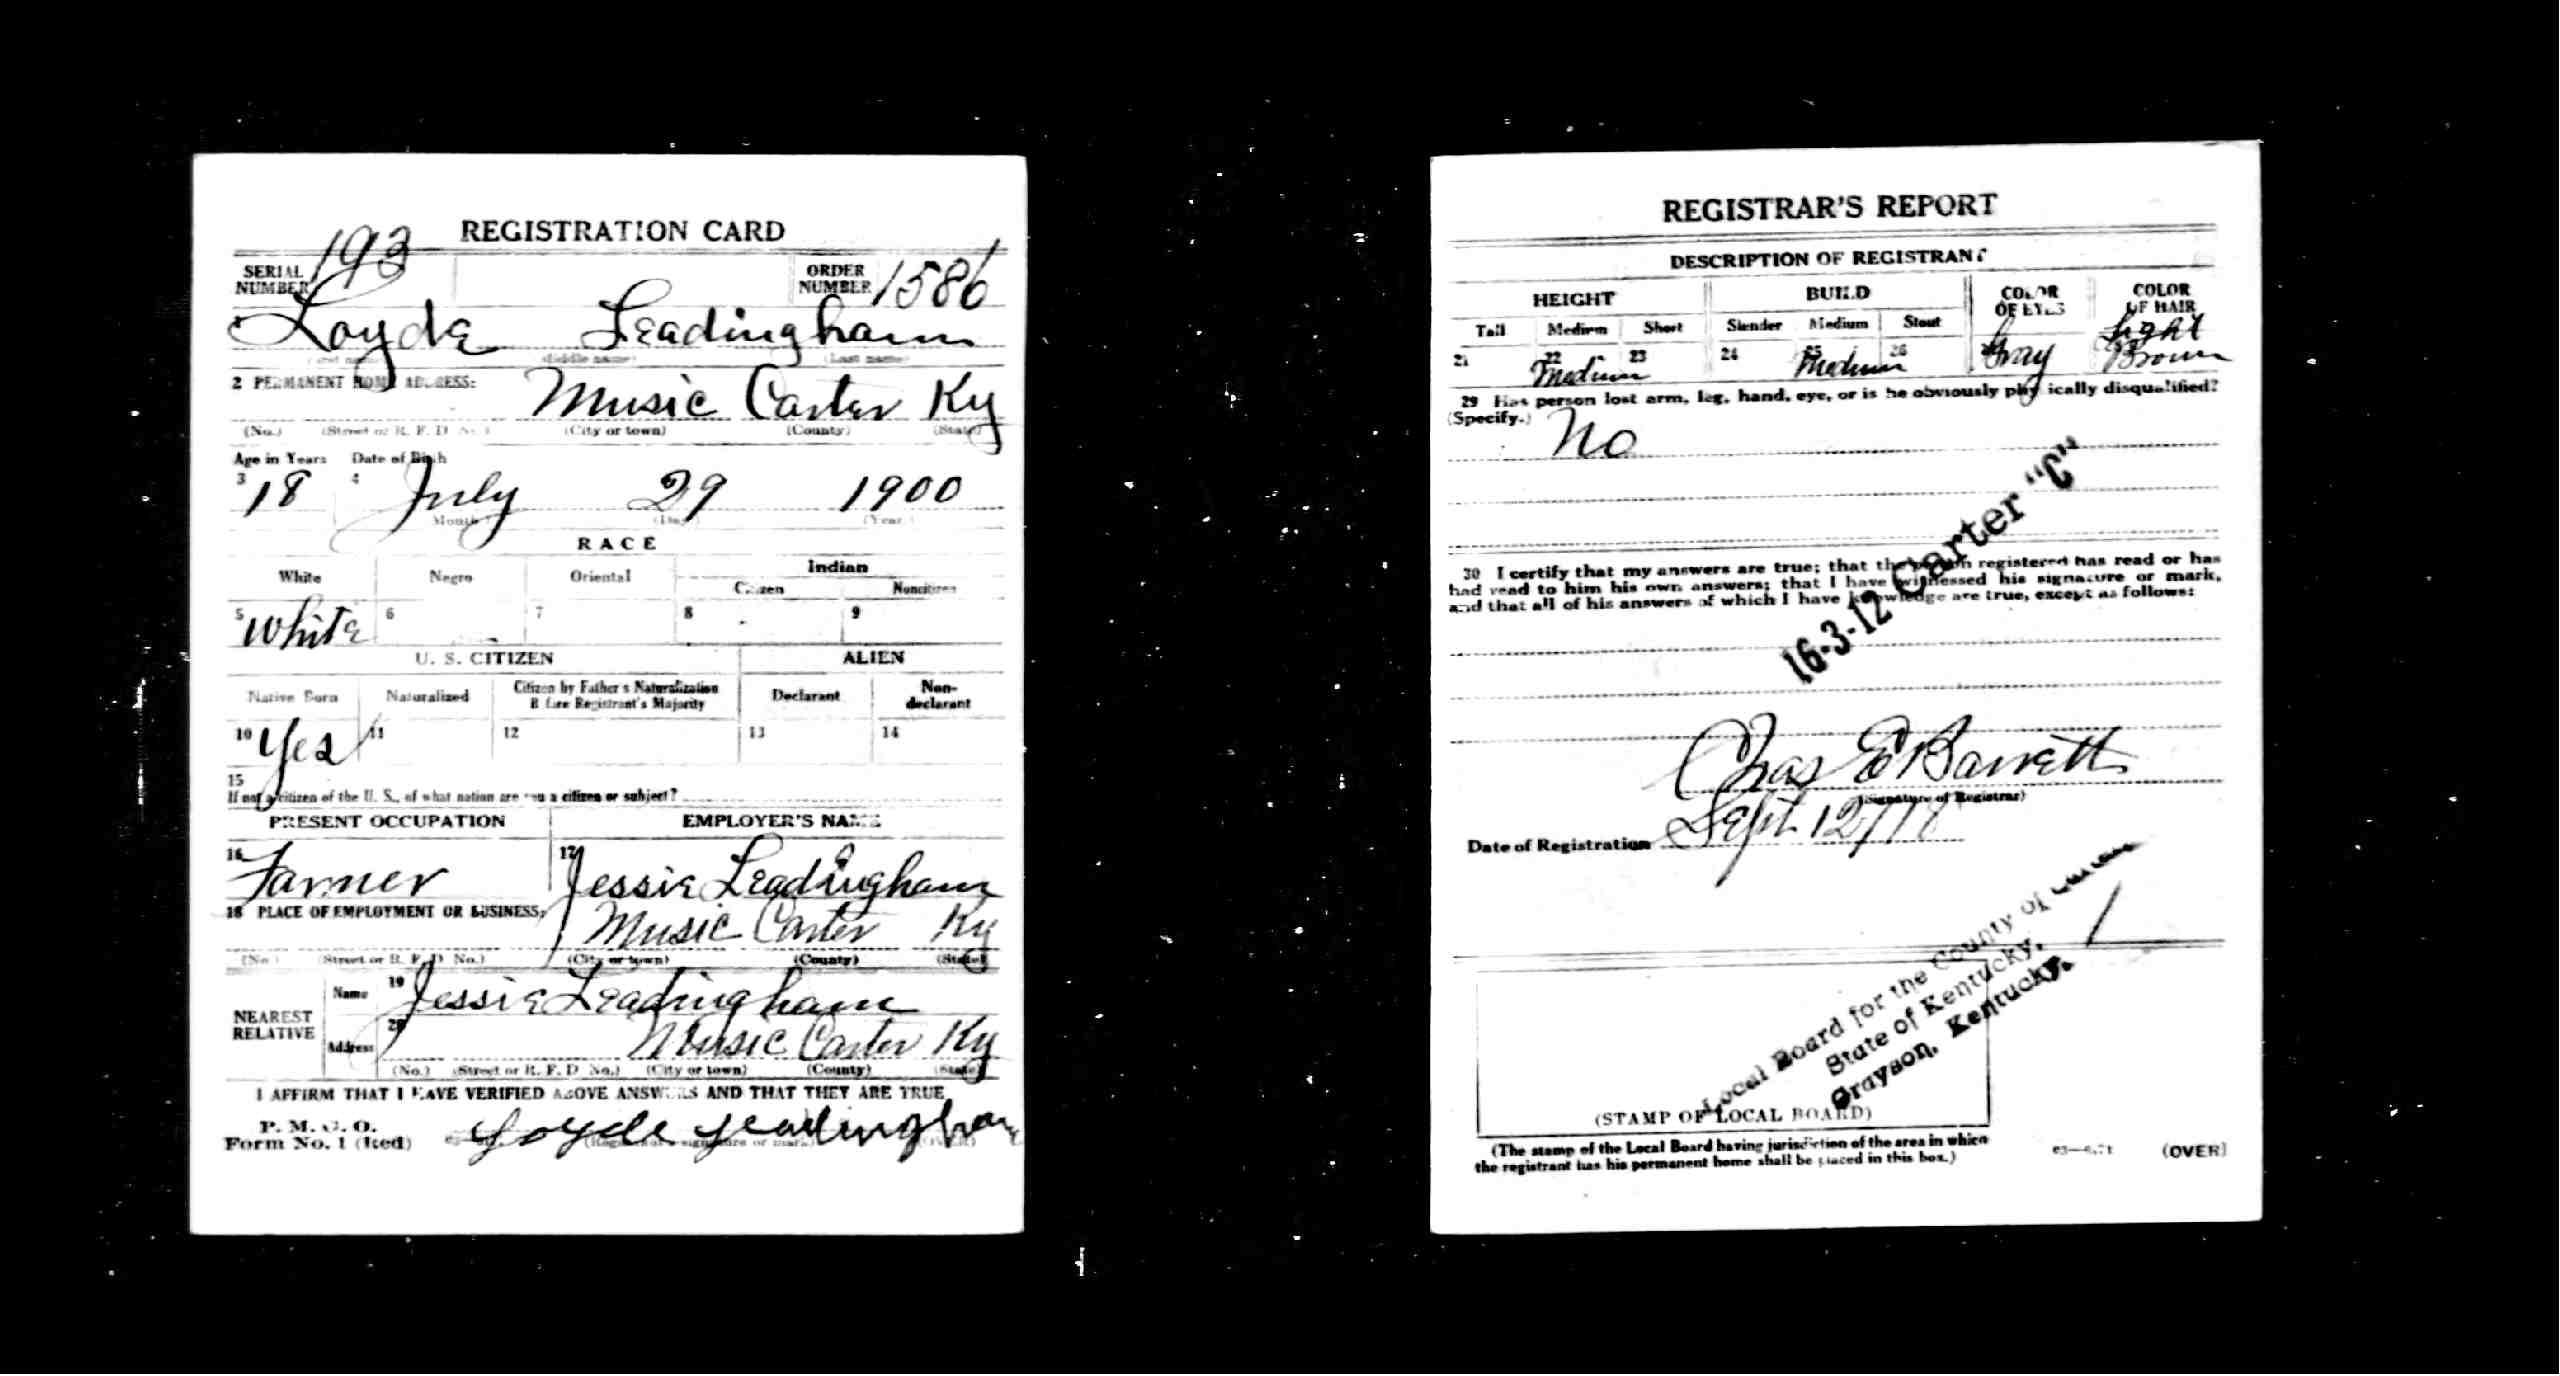 REGISTRATION CARD
SERIAL NUMBER 193
ORDER NUMBER 1586
Loyde Leadingham
(Middle name) (Last name)
2 PERMANENT HOME ADDRESS:
Music Carter Ky
(No.) (Street or R. F. D. No.) (City or town) (County) (State)
Age in Years Date of Birth
3 18 4 July 29 1900
(Month) (Day) (Year)
RACE
White Negro Oriental Indian
Citizen Noncitizen
5 White 6 7 8 9
U. S. CITIZEN ALIEN
Native Born Naturalized Citizen by Father's Naturalization Before Registrant's Majority Declarant Non-declarant
10 Yes 11 12 13 14
15
If not a citizen of the U. S., of what nation are you a citizen or subject?
PRESENT OCCUPATION EMPLOYER'S NAME
16 Farmer 17 Jessie Leadingham
18 PLACE OF EMPLOYMENT OR BUSINESS:
Music Carter Ky
(No.) (Street or R. F. D. No.) (City or town) (County) (State)
NEAREST RELATIVE
Name 19 Jessie Leadingham
Address 20 Music Carter Ky
(No.) (Street or R. F. D. No.) (City or town) (County) (State)
I AFFIRM THAT I HAVE VERIFIED ABOVE ANSWERS AND THAT THEY ARE TRUE
P. M. G. O.
Form No. 1 (Red) Loyde Leadingham
(Registrant's signature or mark)
REGISTRAR'S REPORT
DESCRIPTION OF REGISTRANT
HEIGHT BUILD COLOR OF EYES COLOR OF HAIR
Tall Medium Short Slender Medium Stout
21 22 Medium 23 24 25 Medium 26 Gray Light Brown
29 Has person lost arm, leg, hand, eye, or is he obviously physically disqualified?
(Specify.) No
16-3-12 Carter "C"
30 I certify that my answers are true; that the person registered has read or has
had read to him his own answers; that I have witnessed his signature or mark,
and that all of his answers of which I have knowledge are true, except as follows:
Chas E Barrett
(Signature of Registrar)
Date of Registration Sept 12/18
1
Local Board for the County of
State of Kentucky,
Grayson, Kentucky.
(STAMP OF LOCAL BOARD)
(The stamp of the Local Board having jurisdiction of the area in which
the registrant has his permanent home shall be placed in this box.)
(OVER)